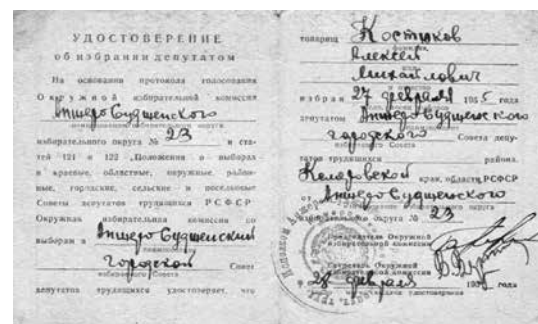 УДОСТОВЕРЕНИЕ
об избрании депутатом
На основании протокола голосования
Окружной избирательной комиссии
Анжеро Судженского
избирательного округа № 23 и ста-
тей 121 и 122 „Положения о выборах
в краевые, областные, окружные, район-
ные, городские, сельские и поселковые
Советы депутатов трудящихся РСФСР
Окружная избирательная комиссия по
выборам в Анжеро Судженский
Городской Совет
депутатов трудящихся удостоверяет, что
товарищ Костюков
Алексей
Михайлович
избран 27 февраля 1955 года
депутатом Анжеро Судженского
городского Совета депу-
татов трудящихся района,
Кемеровской края, области, РСФСР
от Анжеро Судженского
избирательного округа № 23
Председатель Окружной
избирательной комиссии
Секретарь Окружной
избирательной комиссии
28 февраля 195 года